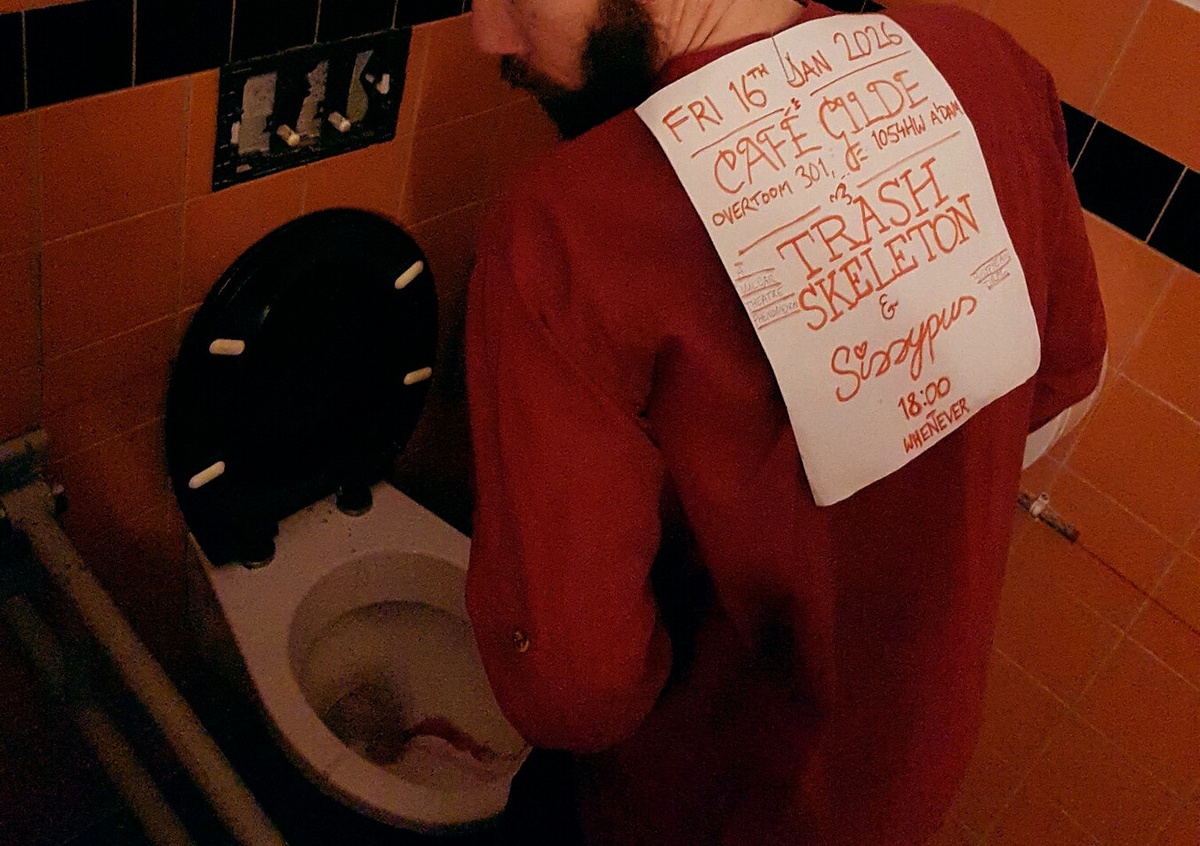 FRI 16TH JAN 2026
CAFÉ GILDE
OVERTOOM 301, 1054HW A'DAM
TRASH
SKELETON
A
VULGAR
THEATRE
PHENOMENON
&
Sissypus
18:00
WHENEVER